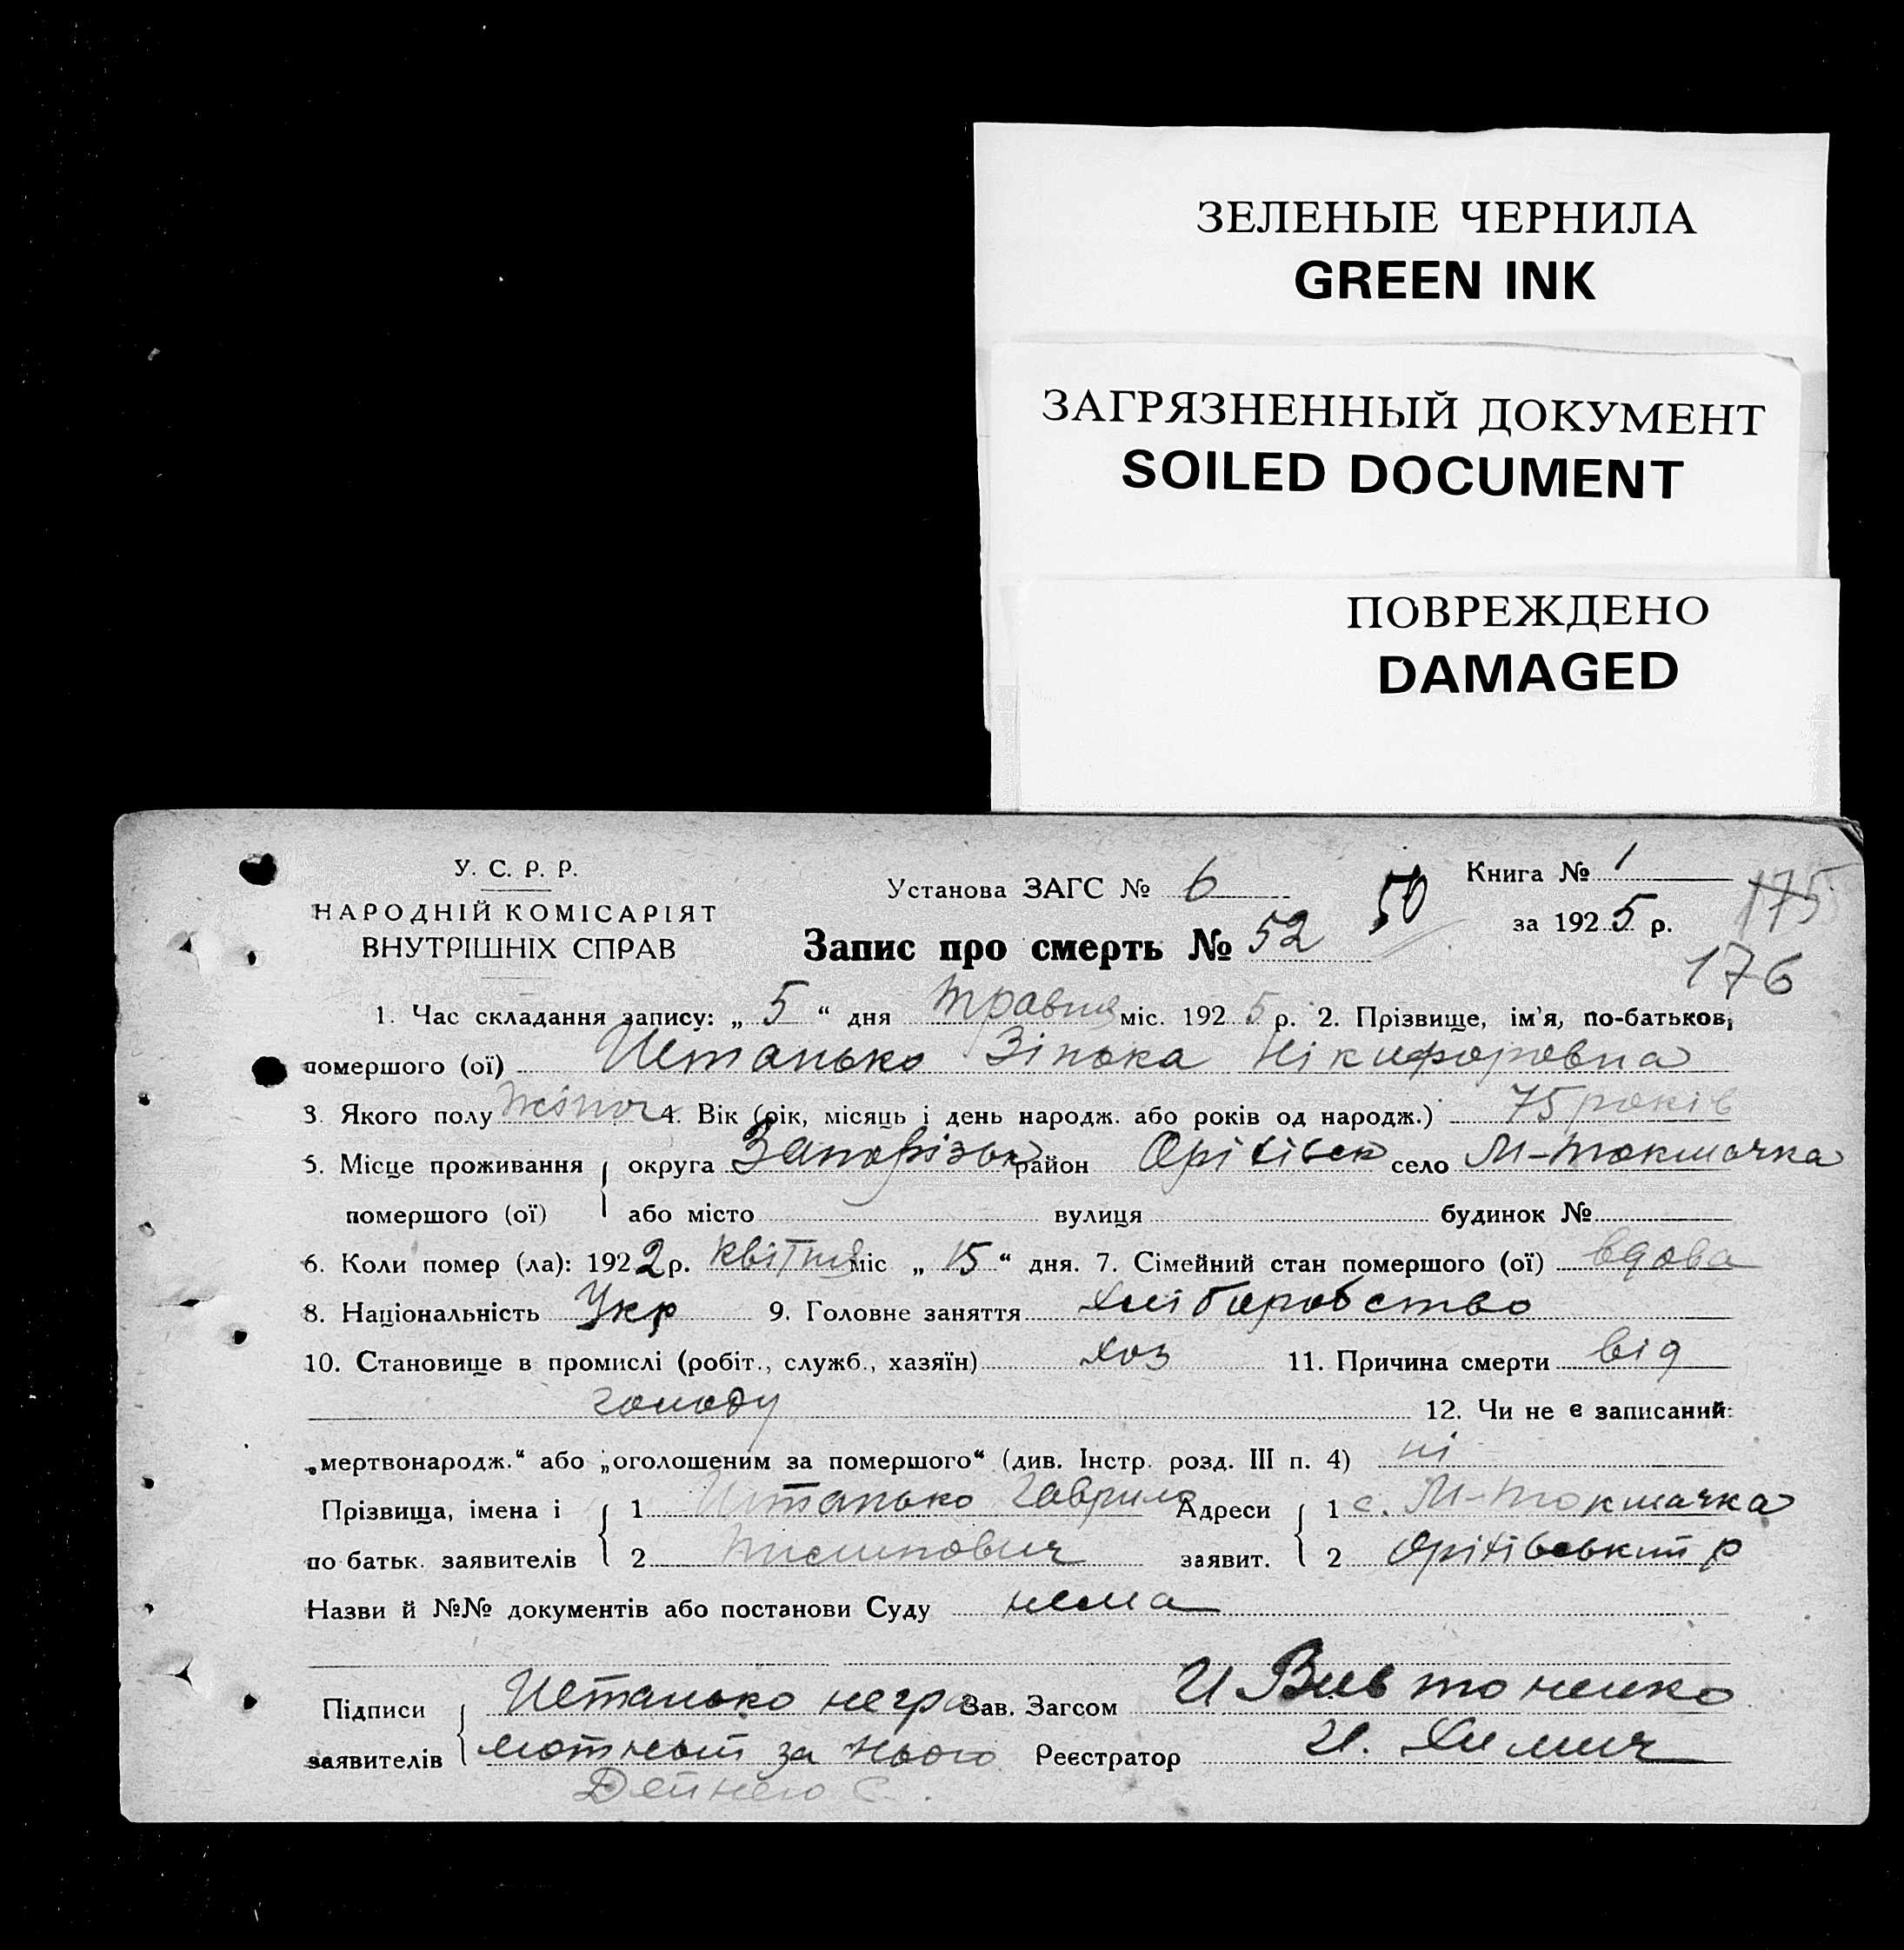 ЗЕЛЕНЫЕ ЧЕРНИЛА
GREEN INK
ЗАГРЯЗНЕННЫЙ ДОКУМЕНТ
SOILED DOCUMENT
ПОВРЕЖДЕНО
DAMAGED
У. С. Р. Р.
НАРОДНІЙ КОМІСАРІЯТ
ВНУТРІШНІХ СПРАВ
Установа ЗАГС № 6
Книга № 1
за 1925 р.
175
176
Запис про смерть № 52 50
1. Час складання запису: „ 5 “ дня травня міс. 1925 р. 2. Прізвище, ім'я, по-батьков,
помершого (ої) Истанько Зінька Нікифоровна
3. Якого полу жіноч 4. Вік (рік, місяць і день народж. або років од народж.) 75 років
5. Місце проживання округа Запорізьк район Оріхівск село М-токмачка
помершого (ої) або місто вулиця будинок №
6. Коли помер (ла): 1922 р. квітня міс „ 15 “ дня. 7. Сімейний стан помершого (ої) вдова
8. Національність Укр 9. Головне заняття хліборобство
10. Становище в промислі (робіт., служб., хазяїн) хоз 11. Причина смерти від
голоду 12. Чи не є записаний:
„мертвонародж.“ або „оголошеним за помершого“ (див. Інстр. розд. III п. 4) ні
Прізвища, імена і 1 Истанько Гаврило Адреси 1 с. М-токмачка
по батьк. заявителів 2 заявит. 2 Оріхівський р
Назви й №№ документів або постанови Суду нема
Підписи Истанько негра Зав. Загсом И Вивтоненко
заявителів мотный за нього Реєстратор И. Химич
С.